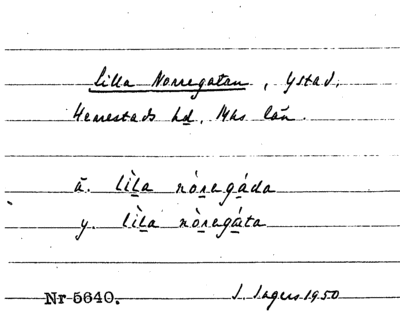 Lilla Norregatan, Ystad,
Herrestads hd, Mas län.
ä. lìl̲a nóreg̲áda
y. lìl̲a nòreg̲áta
Nr 5640. I. Ingers 1950